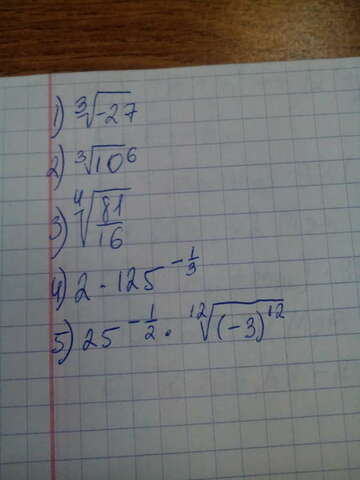 1) ∛-27
2) ∛10⁶
3) ∜(81/16)
4) 2 · 125^(-1/3)
5) 25^(-1/2) · ¹²√(-3)¹²